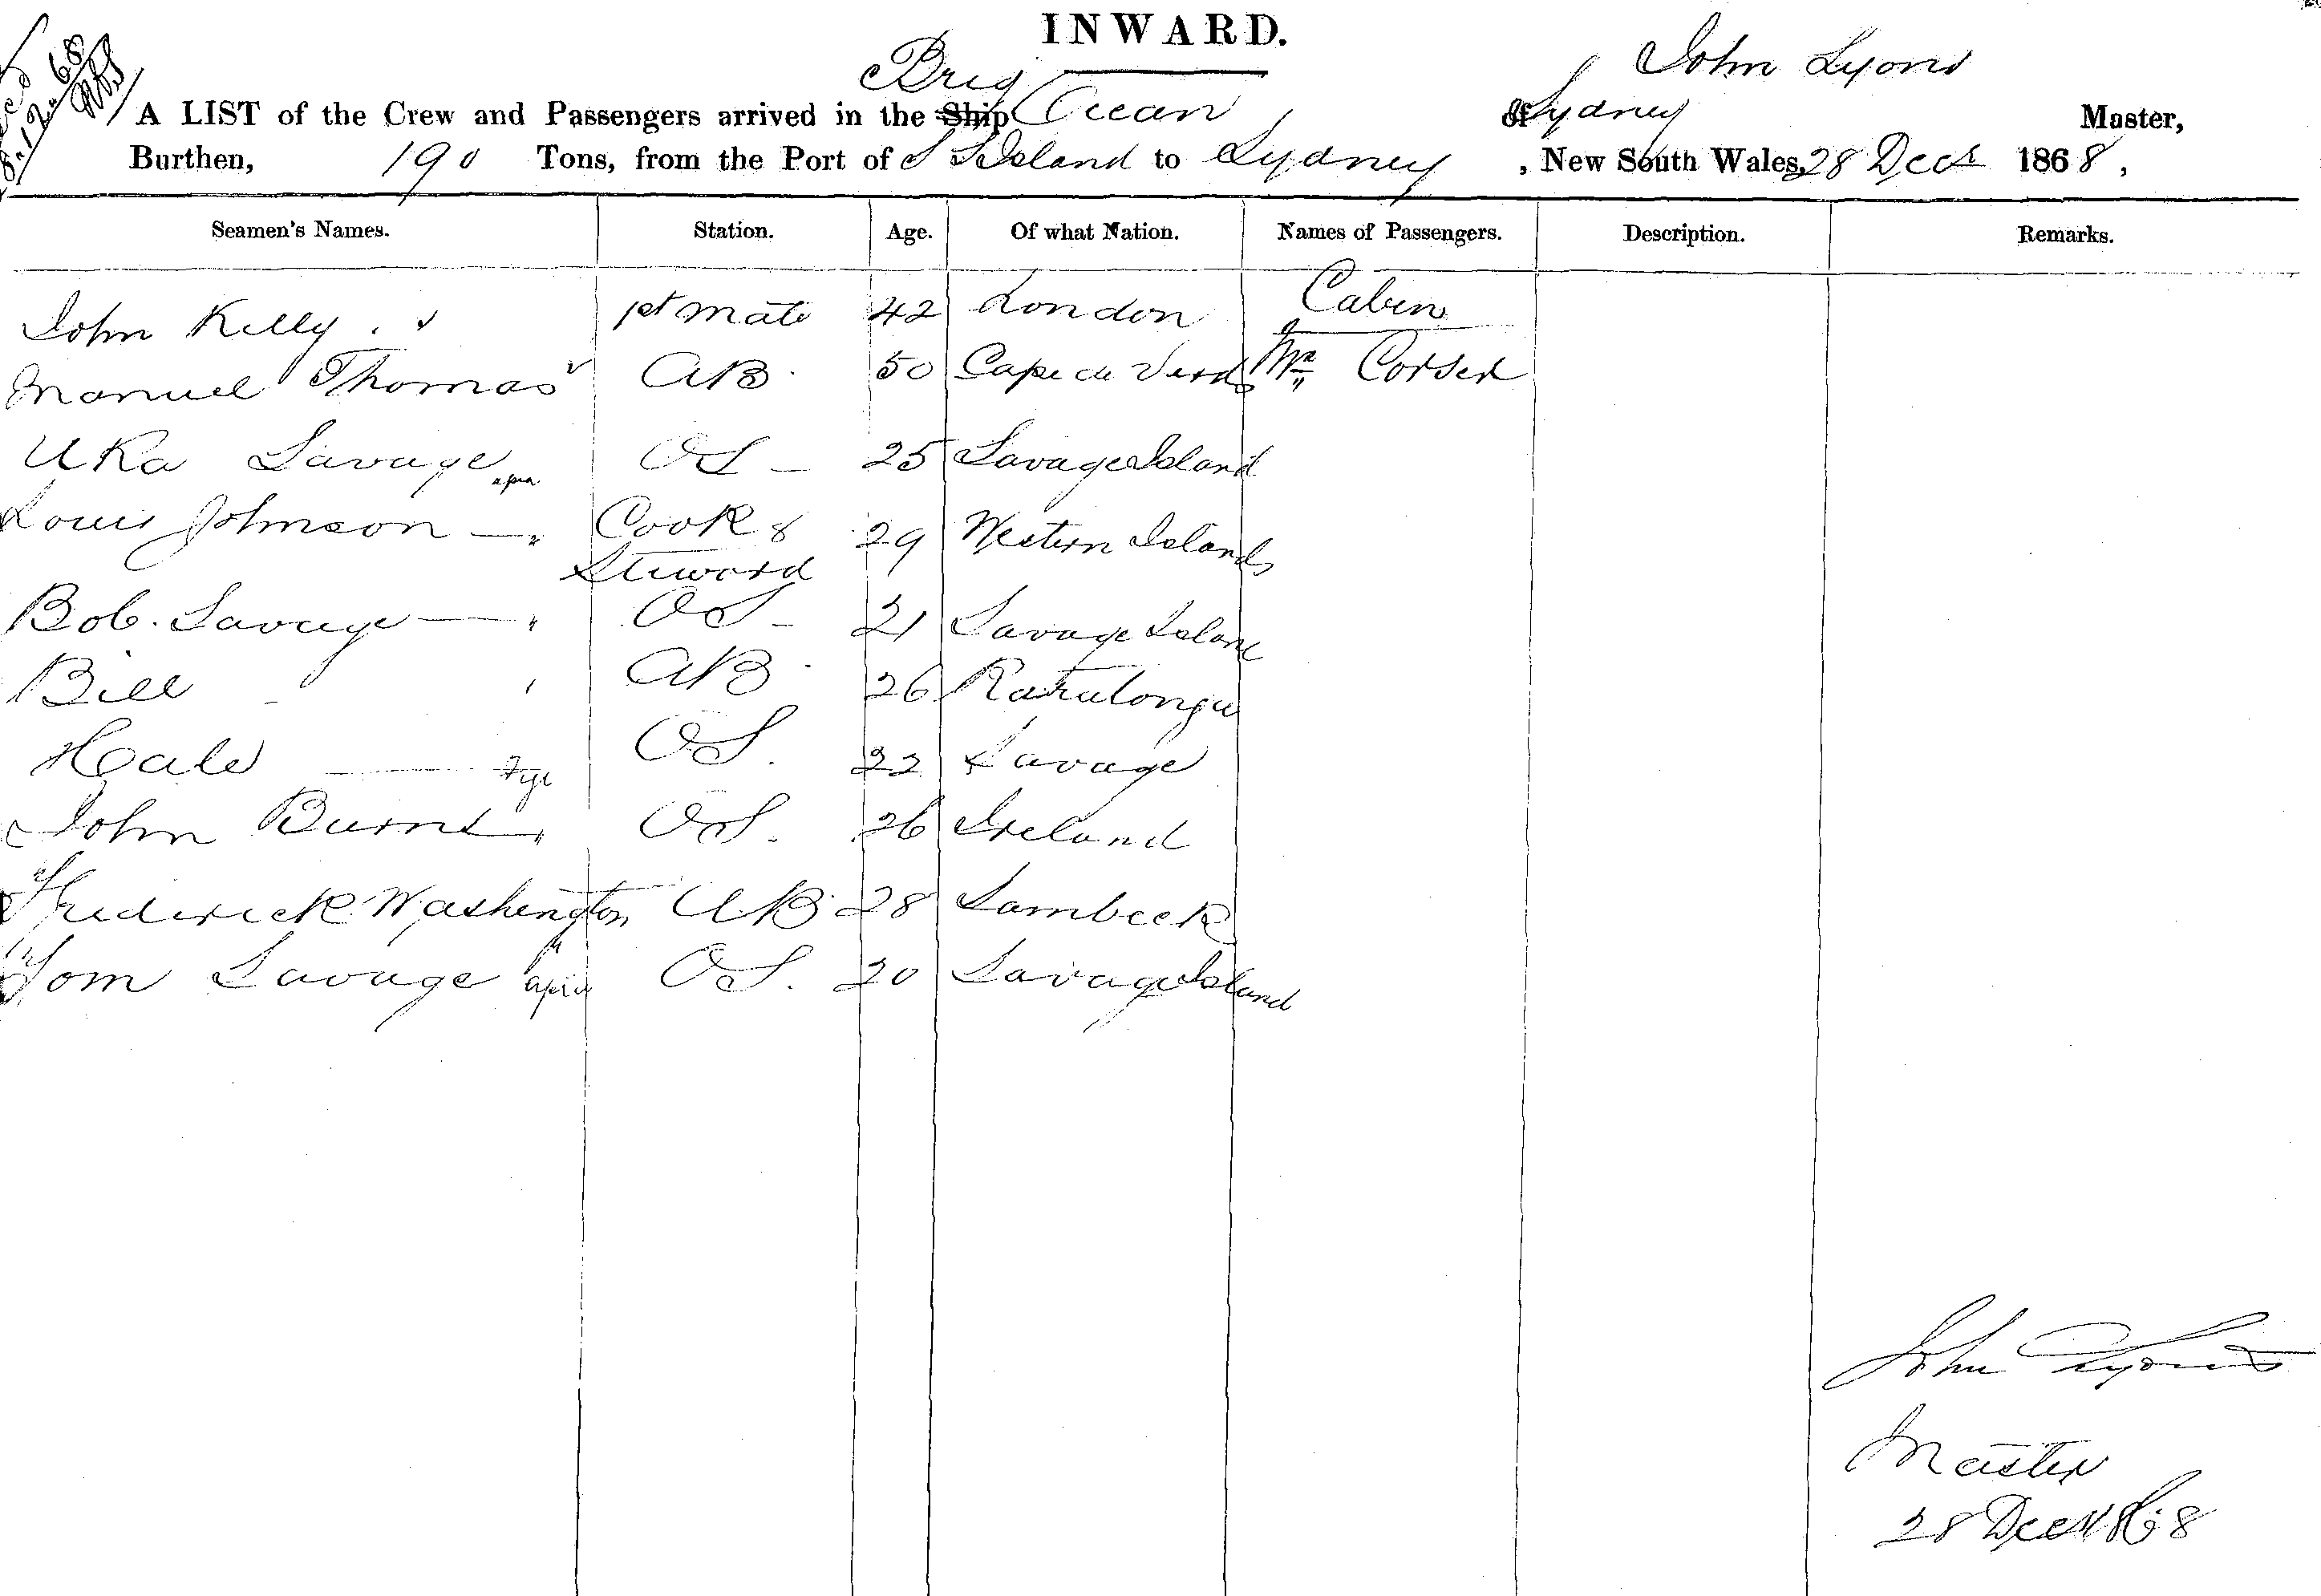 INWARD.
8.12.68
Brig John Lyons
A LIST of the Crew and Passengers arrived in the Ship Ocean of Sydney Master,
Burthen, 190 Tons, from the Port of S S Island to Sydney , New South Wales, 28 Decr 1868,
Seamen's Names. Station. Age. Of what Nation. Names of Passengers. Description. Remarks.
John Kelly 1st Mate 42 London Cabin
Manuel Thomas AB 50 Cape de Verds Mr Corser
Uka Savage apia OS 25 Savage Island
Louis Johnson — " Cook & 29 Western Islands
Steward
Bob. Savage — " OS 21 Savage Island
Bill " AB 26 Raratonga
Heale — Fiji OS. 22 Savage
John Burns " OS. 26 Ireland
Frederick Washington AB 28
Tom Savage apia OS. 20 Savage Island
John Lyons
Master
28 Decr 1868